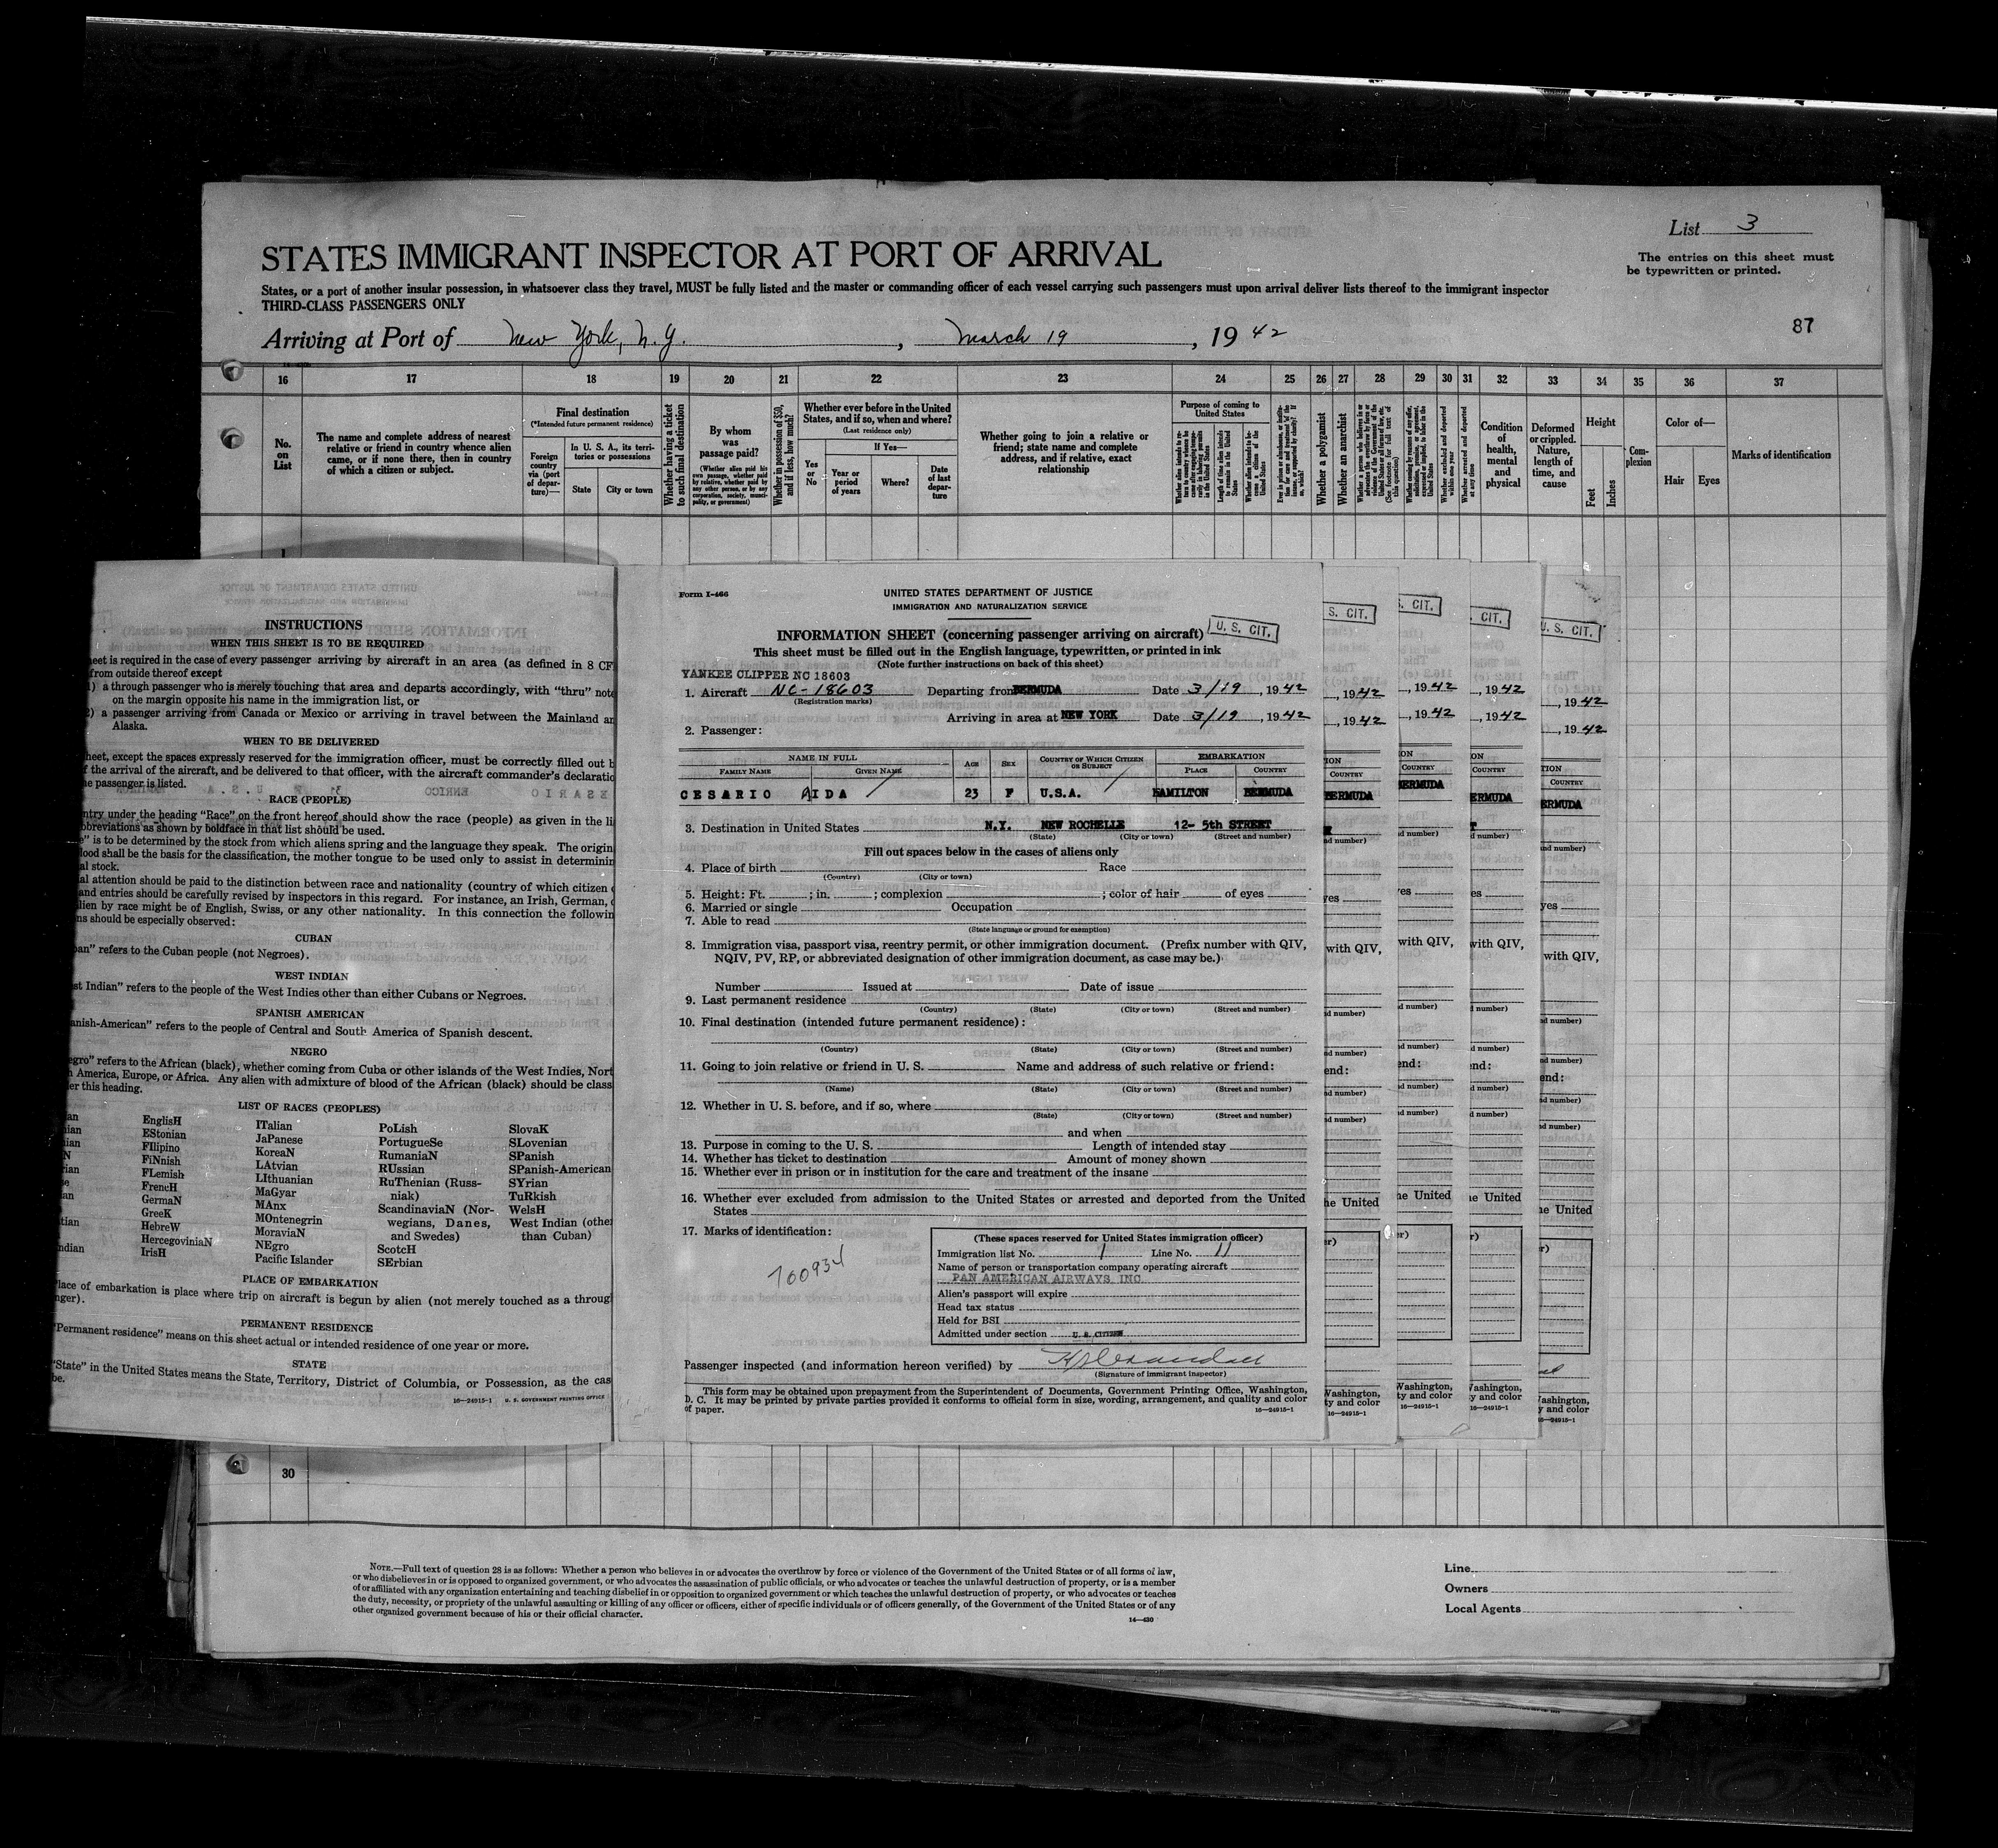 List 3
STATES IMMIGRANT INSPECTOR AT PORT OF ARRIVAL
The entries on this sheet must
be typewritten or printed.
States, or a port of another insular possession, in whatsoever class they travel, MUST be fully listed and the master or commanding officer of each vessel carrying such passengers must upon arrival deliver lists thereof to the immigrant inspector
THIRD-CLASS PASSENGERS ONLY
87
Arriving at Port of New York, N.Y., March 19, 1942
16 17 18 19 20 21 22 23 24 25 26 27 28 29 30 31 32 33 34 35 36 37
No. on List
The name and complete address of nearest relative or friend in country whence alien came, or if none there, then in country of which a citizen or subject.
Final destination
(*Intended future permanent residence)
Foreign country via (port of departure)—
In U. S. A., its territories or possessions
State City or town
Whether having a ticket to such final destination
By whom was passage paid?
(Whether alien paid his own passage, whether paid by relative, whether paid by any other person, or by any corporation, society, municipality, or government)
Whether in possession of $50, and if less, how much?
Whether ever before in the United States, and if so, when and where?
(Last residence only)
Yes or No
If Yes—
Year or period of years
Where?
Date of last departure
Whether going to join a relative or friend; state name and complete address, and if relative, exact relationship
Purpose of coming to United States
Length of time alien intends to remain in the United States
Whether a polygamist
Whether an anarchist
Whether arrested and deported at any time
Condition of health, mental and physical
Deformed or crippled. Nature, length of time, and cause
Height
Feet Inches
Complexion
Color of—
Hair Eyes
Marks of identification
INSTRUCTIONS
WHEN THIS SHEET IS TO BE REQUIRED
is required in the case of every passenger arriving by aircraft in an area (as defined in 8
from outside thereof except
) a through passenger who is merely touching that area and departs accordingly, with "thru"
on the margin opposite his name in the immigration list, or
) a passenger arriving from Canada or Mexico or arriving in travel between the Mainland
Alaska.
WHEN TO BE DELIVERED
except the spaces expressly reserved for the immigration officer, must be correctly filled out
the arrival of the aircraft, and be delivered to that officer, with the aircraft commander's
passenger is listed.
RACE (PEOPLE)
under the heading "Race" on the front hereof should show the race (people) as given in the
as shown by boldface in that list should be used.
is to be determined by the stock from which aliens spring and the language they speak. The
shall be the basis for the classification, the mother tongue to be used only to assist in
stock.
attention should be paid to the distinction between race and nationality (country of which citizen
and entries should be carefully revised by inspectors in this regard. For instance, an Irish, German,
by race might be of English, Swiss, or any other nationality. In this connection the
should be especially observed:
CUBAN
refers to the Cuban people (not Negroes).
WEST INDIAN
Indian" refers to the people of the West Indies other than either Cubans or Negroes.
SPANISH AMERICAN
refers to the people of Central and South America of Spanish descent.
NEGRO
refers to the African (black), whether coming from Cuba or other islands of the West Indies,
America, Europe, or Africa. Any alien with admixture of blood of the African (black) should be
this heading.
LIST OF RACES (PEOPLES)
EnglisH ITalian PoLish SlovaK
EStonian JaPanese PortugueSe SLovenian
FIlipino KoreaN RumaniaN SPanish
FiNnish LAtvian RUssian SPanish-American
FLemish LIthuanian RuThenian (Russniak) SYrian
FrencH MaGyar ScandinaviaN (Norwegians, Danes, and Swedes) TuRkish
GermaN MAnx ScotcH WelsH
GreeK MOntenegrin SErbian West Indian (other than Cuban)
HebreW MoraviaN
HercegoviniaN NEgro
IrisH Pacific Islander
PLACE OF EMBARKATION
of embarkation is place where trip on aircraft is begun by alien (not merely touched as a
PERMANENT RESIDENCE
"Permanent residence" means on this sheet actual or intended residence of one year or more.
STATE
"State" in the United States means the State, Territory, District of Columbia, or Possession, as the
be.
16—24915-1 U. S. GOVERNMENT PRINTING OFFICE
Form I-466
UNITED STATES DEPARTMENT OF JUSTICE
IMMIGRATION AND NATURALIZATION SERVICE
U. S. CIT.
INFORMATION SHEET (concerning passenger arriving on aircraft)
This sheet must be filled out in the English language, typewritten, or printed in ink
(Note further instructions on back of this sheet)
YANKEE CLIPPER NC 18603
1. Aircraft NC-18603 Departing from BERMUDA Date 3/19, 1942
(Registration marks)
Arriving in area at NEW YORK Date 3/19, 1942
2. Passenger:
NAME IN FULL AGE SEX COUNTRY OF WHICH CITIZEN OR SUBJECT EMBARKATION
FAMILY NAME GIVEN NAME PLACE COUNTRY
CESARIO AIDA 23 F U.S.A. HAMILTON BERMUDA
3. Destination in United States N.Y. NEW ROCHELLE 12- 5th STREET
(State) (City or town) (Street and number)
Fill out spaces below in the cases of aliens only
4. Place of birth Race
(Country) (City or town)
5. Height: Ft. ; in. ; complexion ; color of hair of eyes
6. Married or single Occupation
7. Able to read
(State language or ground for exemption)
8. Immigration visa, passport visa, reentry permit, or other immigration document. (Prefix number with QIV,
NQIV, PV, RP, or abbreviated designation of other immigration document, as case may be.)
Number Issued at Date of issue
9. Last permanent residence
(Country) (State) (City or town) (Street and number)
10. Final destination (intended future permanent residence):
(Country) (State) (City or town) (Street and number)
11. Going to join relative or friend in U. S. Name and address of such relative or friend:
(Name) (State) (City or town) (Street and number)
12. Whether in U. S. before, and if so, where
(State) (City or town) (Street and number)
and when
13. Purpose in coming to the U. S. Length of intended stay
14. Whether has ticket to destination Amount of money shown
15. Whether ever in prison or in institution for the care and treatment of the insane
16. Whether ever excluded from admission to the United States or arrested and deported from the United
States
17. Marks of identification:
700934
(These spaces reserved for United States immigration officer)
Immigration list No. 1 Line No. 11
Name of person or transportation company operating aircraft
PAN AMERICAN AIRWAYS, INC.
Alien's passport will expire
Head tax status
Held for BSI
Admitted under section U. S. CITIZEN
Passenger inspected (and information hereon verified) by
(Signature of immigrant inspector)
This form may be obtained upon prepayment from the Superintendent of Documents, Government Printing Office, Washington,
D. C. It may be printed by private parties provided it conforms to official form in size, wording, arrangement, and quality and color
of paper.
16—24915-1
30
NOTE.—Full text of question 28 is as follows: Whether a person who believes in or advocates the overthrow by force or violence of the Government of the United States or of all forms of law,
or who disbelieves in or is opposed to organized government, or who advocates the assassination of public officials, or who advocates or teaches the unlawful destruction of property, or is a member
of or affiliated with any organization entertaining and teaching disbelief in or opposition to organized government or which teaches the unlawful destruction of property, or who advocates or teaches
the duty, necessity, or propriety of the unlawful assaulting or killing of any officer or officers, either of specific individuals or of officers generally, of the Government of the United States or of any
other organized government because of his or their official character.
14—430
Line
Owners
Local Agents